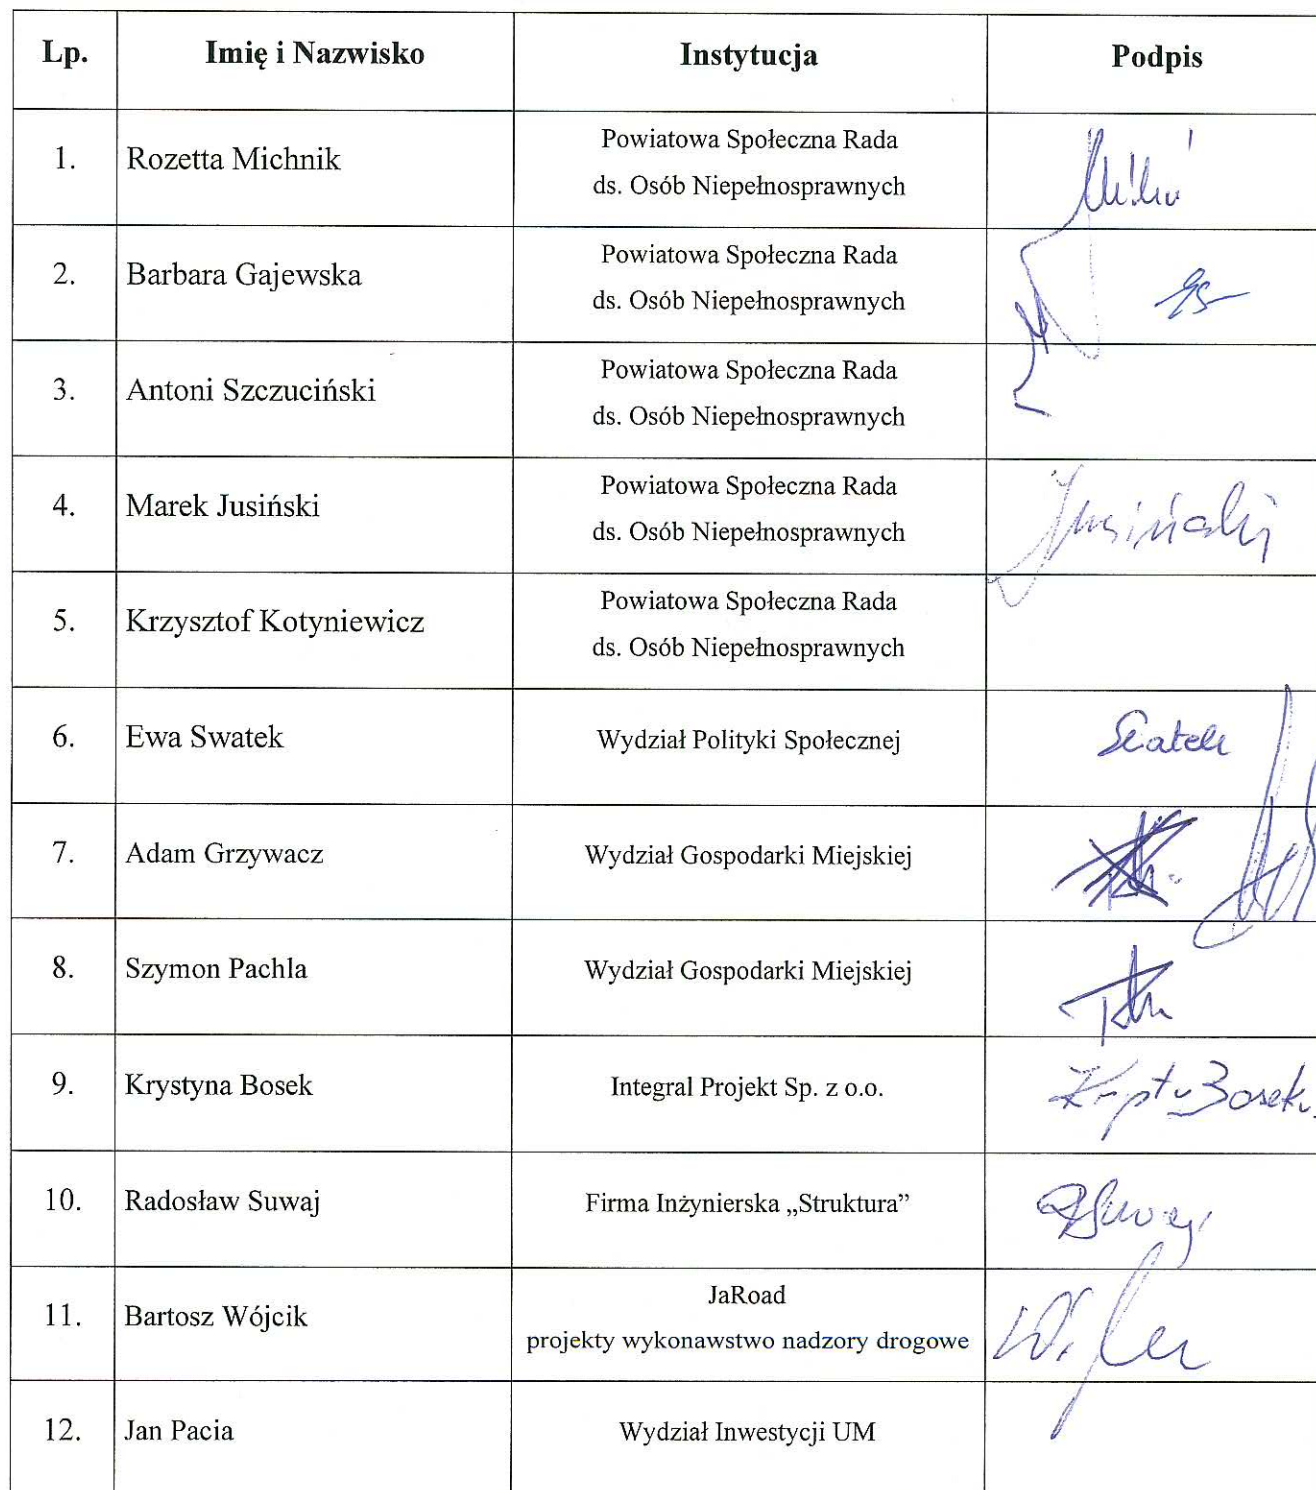 Lp. Imię i Nazwisko Instytucja Podpis
1. Rozetta Michnik Powiatowa Społeczna Rada
ds. Osób Niepełnosprawnych
2. Barbara Gajewska Powiatowa Społeczna Rada
ds. Osób Niepełnosprawnych
3. Antoni Szczuciński Powiatowa Społeczna Rada
ds. Osób Niepełnosprawnych
4. Marek Jusiński Powiatowa Społeczna Rada
ds. Osób Niepełnosprawnych Jusiński
5. Krzysztof Kotyniewicz Powiatowa Społeczna Rada
ds. Osób Niepełnosprawnych
6. Ewa Swatek Wydział Polityki Społecznej
7. Adam Grzywacz Wydział Gospodarki Miejskiej
8. Szymon Pachla Wydział Gospodarki Miejskiej
9. Krystyna Bosek Integral Projekt Sp. z o.o.
10. Radosław Suwaj Firma Inżynierska „Struktura”
11. Bartosz Wójcik JaRoad
projekty wykonawstwo nadzory drogowe
12. Jan Pacia Wydział Inwestycji UM